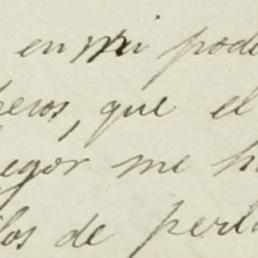 en mi pode
pesos, que el
egor me h
los de perl